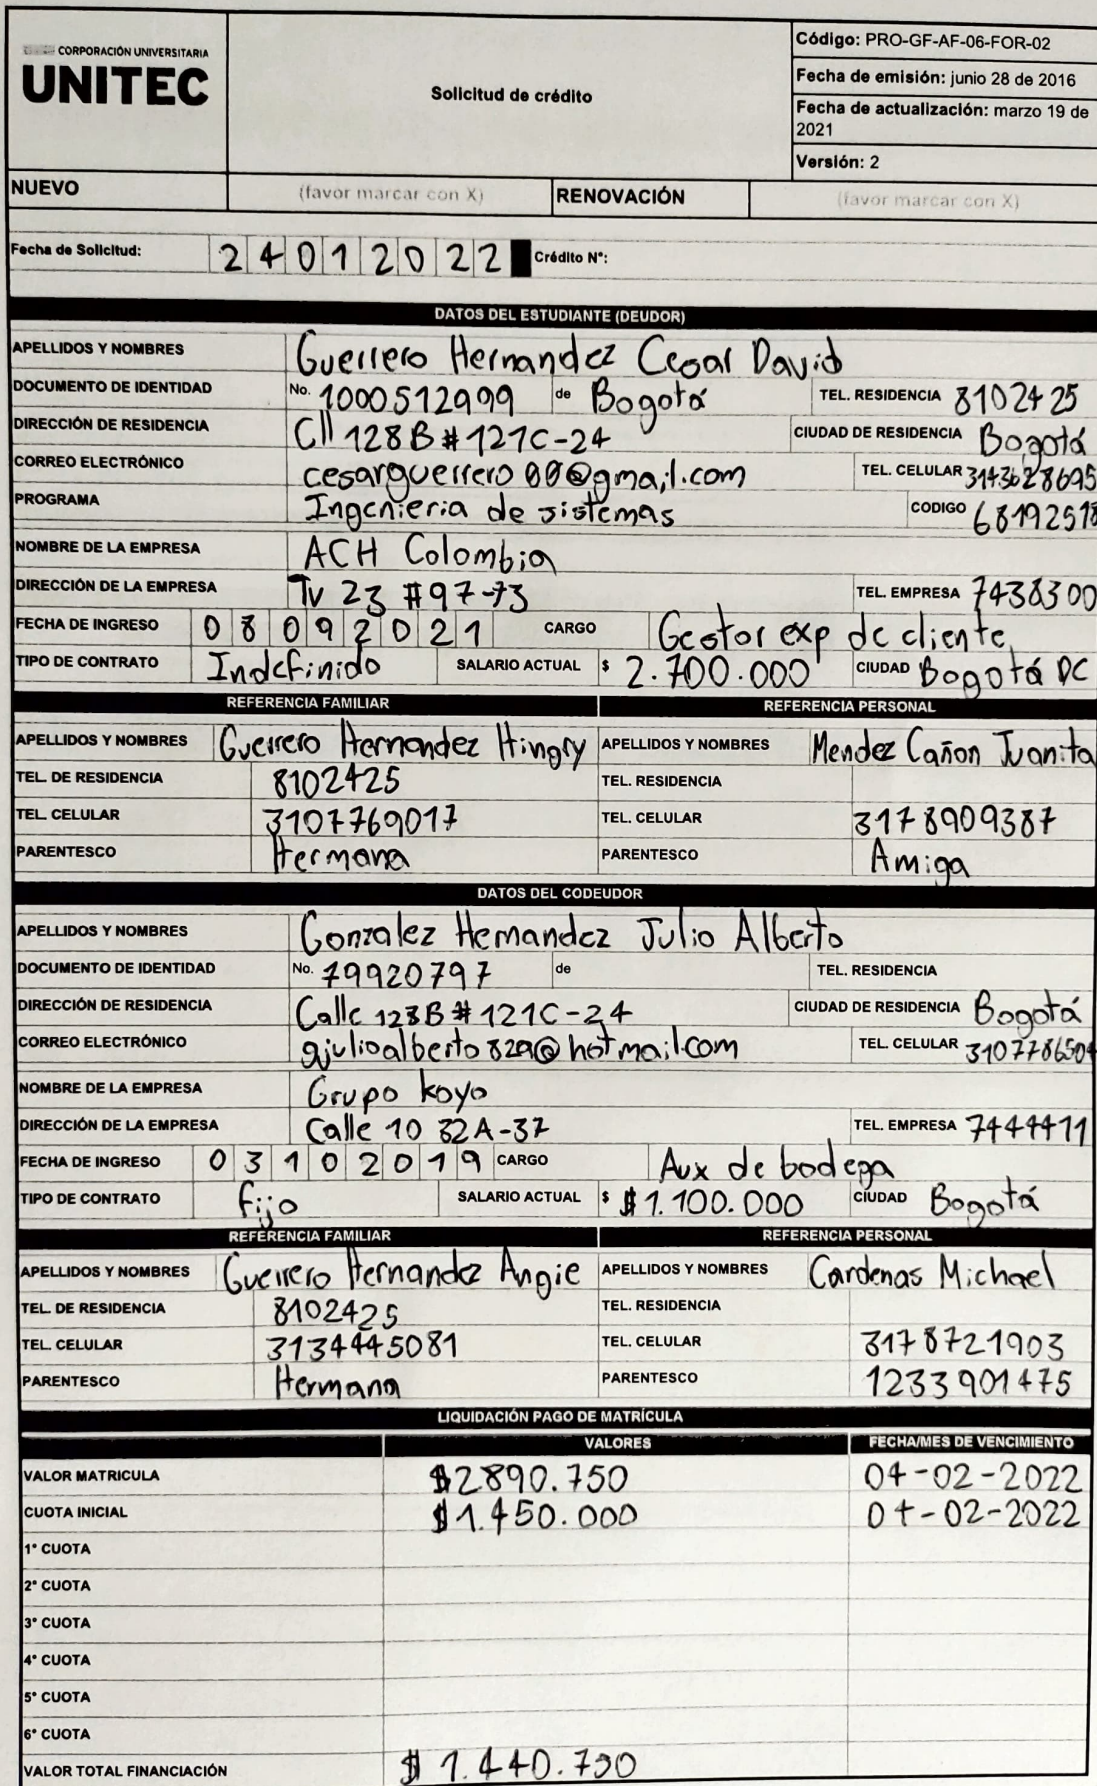 CORPORACIÓN UNIVERSITARIA
UNITEC
Solicitud de crédito
Código: PRO-GF-AF-06-FOR-02
Fecha de emisión: junio 28 de 2016
Fecha de actualización: marzo 19 de 2021
Versión: 2
NUEVO (favor marcar con X) RENOVACIÓN (favor marcar con X)
Fecha de Solicitud: 24012022 Crédito N°:
DATOS DEL ESTUDIANTE (DEUDOR)
APELLIDOS Y NOMBRES Guerrero Hernandez Cesar David
DOCUMENTO DE IDENTIDAD No. 1000512999 de Bogotá TEL. RESIDENCIA 8102425
DIRECCIÓN DE RESIDENCIA Cll 128B # 121C-24 CIUDAD DE RESIDENCIA Bogotá
CORREO ELECTRÓNICO cesarguerrero00@gmail.com TEL. CELULAR 3143628695
PROGRAMA Ingenieria de sistemas CODIGO 68192518
NOMBRE DE LA EMPRESA ACH Colombia
DIRECCIÓN DE LA EMPRESA Tv 23 #97-73 TEL. EMPRESA 7438300
FECHA DE INGRESO 08092021 CARGO Gestor exp de cliente
TIPO DE CONTRATO Indefinido SALARIO ACTUAL $ 2.700.000 CIUDAD Bogotá DC
REFERENCIA FAMILIAR REFERENCIA PERSONAL
APELLIDOS Y NOMBRES Guerrero Hernandez Hingry APELLIDOS Y NOMBRES Mendez Cañon Juanita
TEL. DE RESIDENCIA 8102425 TEL. RESIDENCIA
TEL. CELULAR 3107769017 TEL. CELULAR 3178909387
PARENTESCO Hermana PARENTESCO Amiga
DATOS DEL CODEUDOR
APELLIDOS Y NOMBRES Gonzalez Hernandez Julio Alberto
DOCUMENTO DE IDENTIDAD No. 79920797 de TEL. RESIDENCIA
DIRECCIÓN DE RESIDENCIA Calle 128B # 121C-24 CIUDAD DE RESIDENCIA Bogotá
CORREO ELECTRÓNICO gjulioalberto829@hotmail.com TEL. CELULAR 3107786504
NOMBRE DE LA EMPRESA Grupo koyo
DIRECCIÓN DE LA EMPRESA Calle 10 32A-37 TEL. EMPRESA 7444411
FECHA DE INGRESO 03102019 CARGO Aux de bodega
TIPO DE CONTRATO fijo SALARIO ACTUAL $ $1.100.000 CIUDAD Bogotá
REFERENCIA FAMILIAR REFERENCIA PERSONAL
APELLIDOS Y NOMBRES Guerrero Hernandez Angie APELLIDOS Y NOMBRES Cardenas Michael
TEL. DE RESIDENCIA 8102425 TEL. RESIDENCIA
TEL. CELULAR 3134445081 TEL. CELULAR 3178721903
PARENTESCO Hermana PARENTESCO 1233901475
LIQUIDACIÓN PAGO DE MATRÍCULA
VALORES FECHA/MES DE VENCIMIENTO
VALOR MATRICULA $2890.750 04-02-2022
CUOTA INICIAL $1.450.000 04-02-2022
1° CUOTA
2° CUOTA
3° CUOTA
4° CUOTA
5° CUOTA
6° CUOTA
VALOR TOTAL FINANCIACIÓN $ 1.440.750